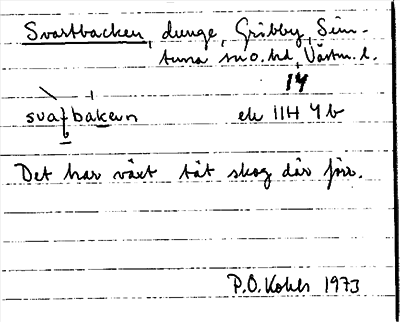 Svartbacken, dunge, Gräbby, Sim-
tuna sn o. hd, Västm. l.
14
svaṭbaken ek 11H 4b
Det har växt tät skog där förr.
P.O. Kohls 1973